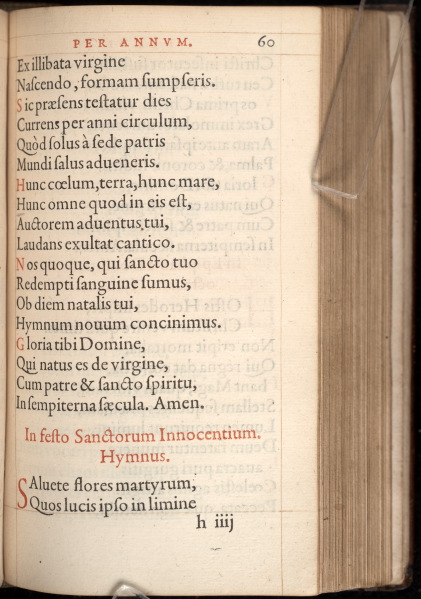 PER ANNVM. 60
Ex illibata virgine
Nascendo, formam sumpseris.
Sic præsens testatur dies
Currens per anni circulum,
Quòd solus à sede patris
Mundi salus adueneris.
Hunc cœlum, terra, hunc mare,
Hunc omne quod in eis est,
Auctorem aduentus tui,
Laudans exultat cantico.
Nos quoque, qui sancto tuo
Redempti sanguine sumus,
Ob diem natalis tui,
Hymnum nouum concinimus.
Gloria tibi Domine,
Qui natus es de virgine,
Cum patre & sancto spiritu,
In sempiterna sæcula. Amen.
In festo Sanctorum Innocentium.
Hymnus.
SAluete flores martyrum,
Quos lucis ipso in limine
h iiij